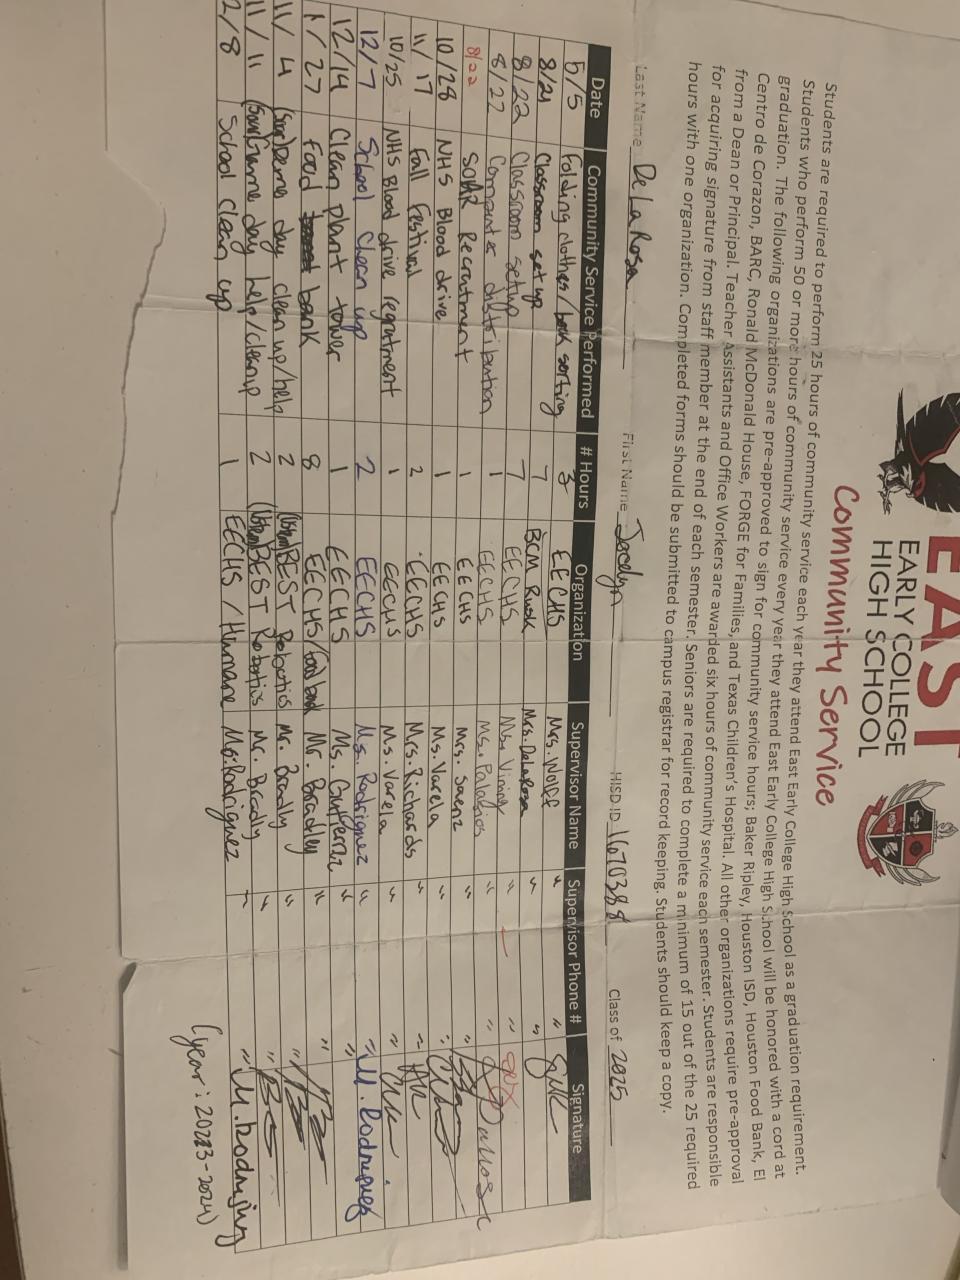 EAST
EARLY COLLEGE
HIGH SCHOOL
Community Service
Students are required to perform 25 hours of community service each year they attend East Early College High School as a graduation requirement.
Students who perform 50 or more hours of community service every year they attend East Early College High School will be honored with a cord at
graduation. The following organizations are pre-approved to sign for community service hours; Baker Ripley, Houston ISD, Houston Food Bank, El
Centro de Corazon, BARC, Ronald McDonald House, FORGE for Families, and Texas Children's Hospital. All other organizations require pre-approval
from a Dean or Principal. Teacher Assistants and Office Workers are awarded six hours of community service each semester. Students are responsible
for acquiring signature from staff member at the end of each semester. Seniors are required to complete a minimum of 15 out of the 25 required
hours with one organization. Completed forms should be submitted to campus registrar for record keeping. Students should keep a copy.
Last Name De La Rosa First Name Jocelyn HISD ID 1670388 Class of 2025
Date Community Service Performed # Hours Organization Supervisor Name Supervisor Phone # Signature
5/5 Folding clothes / book sorting 3 EECHS Mrs. Wolff " "
8/21 Classroom set up 7 BCM Rusk Mrs. DelaRosa " "
8/22 Classroom setup 7 EECHS Ms. Vining " "
8/22 Computer distribution 1 EECHS Ms. Palacios " "
8/22 SOAR Recruitment 1 EECHS Mrs. Saenz " "
10/28 NHS Blood drive 1 EECHS Ms. Varela " "
11/17 Fall Festival 2 EECHS Mrs. Richards " "
10/25 NHS Blood drive regruitment 1 EECHS Ms. Varela " "
12/7 School Clean up 2 EECHS Ms. Rodriguez " " M. Rodriguez
12/14 Clean plant tower 1 EECHS Ms. Gutierrez " "
/27 Food bank 8 EECHS/food bank Mr. Bradley " "
11/4 game day clean up/help 2 BEST Robotics Mr. Bradly " "
11/11 Game day help/cleanup 2 BEST Robotics Mr. Bradly " "
2/8 School clean up 1 EECHS / Humane Ms. Rodriguez " "
(year: 2023-2024)